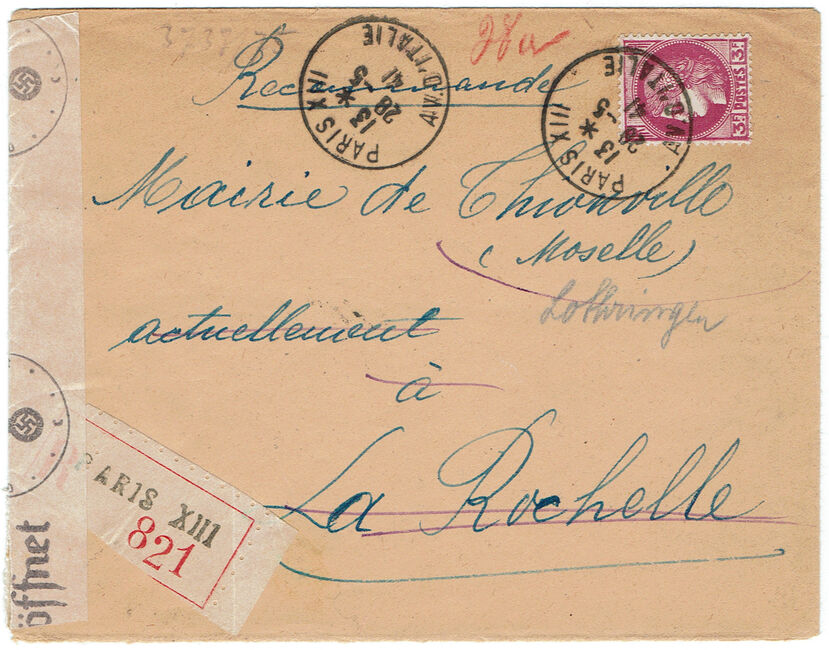 Recommandé
28a
3F POSTES 3F
PARIS XIII
13 *
28 -5
41
AV. D'ITALIE
PARIS XIII
13 *
28 -5
41
AV. D'ITALIE
Mairie de Thionville
(Moselle)
Lothringen
actuellement
à
La Rochelle
R
PARIS XIII
821
öffnet